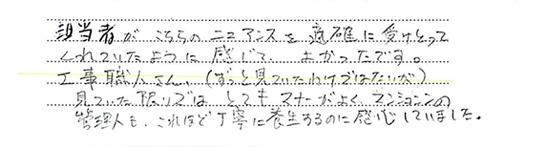 担当者が こちらの ニュアンスを 適確に 受けとって
くれていたように 感じて、よかったです。
工事職人さん、(ずっと見ていたわけではないが)
見ていた限りでは とても マナーがよく、マンションの
管理人も、これほど丁寧に養生するのに感心していました。